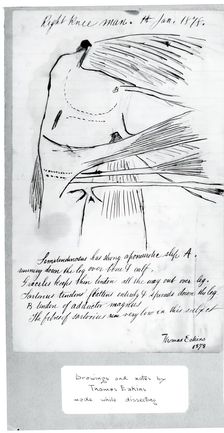 Right Knee man. 14 Jan. 1878.
A
B
Semitendinosus has strong aponeurotic slip A.
running down the leg over bone & calf.
Gracilis keeps thin tendon all the way out over leg.
Sartorius tendon flattens entirely & spreads down the leg
B tendon of adductor magnus
The fibres of sartorius run very low in this subject
Thomas Eakins
1878
Drawings and notes by
Thomas Eakins
made while dissecting